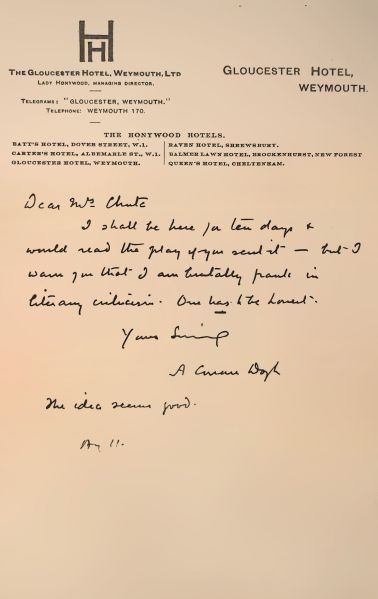 HH
THE GLOUCESTER HOTEL, WEYMOUTH, LTD
LADY HONYWOOD, MANAGING DIRECTOR,
TELEGRAMS: "GLOUCESTER, WEYMOUTH."
TELEPHONE: WEYMOUTH 170.
GLOUCESTER HOTEL,
WEYMOUTH.
THE HONYWOOD HOTELS.
BATT'S HOTEL, DOVER STREET, W.1.
CARTER'S HOTEL, ALBEMARLE ST., W.1.
GLOUCESTER HOTEL, WEYMOUTH.
RAVEN HOTEL, SHREWSBURY.
BALMER LAWN HOTEL, BROCKENHURST, NEW FOREST
QUEEN'S HOTEL, CHELTENHAM.
Dear Mrs Chute
I shall be here for ten days &
would read the play if you sent it — but I
warn you that I am brutally frank in
literary criticism. One has to be honest.
Yours Sincerely
A Conan Doyle
The idea seems good.
Aug 11.